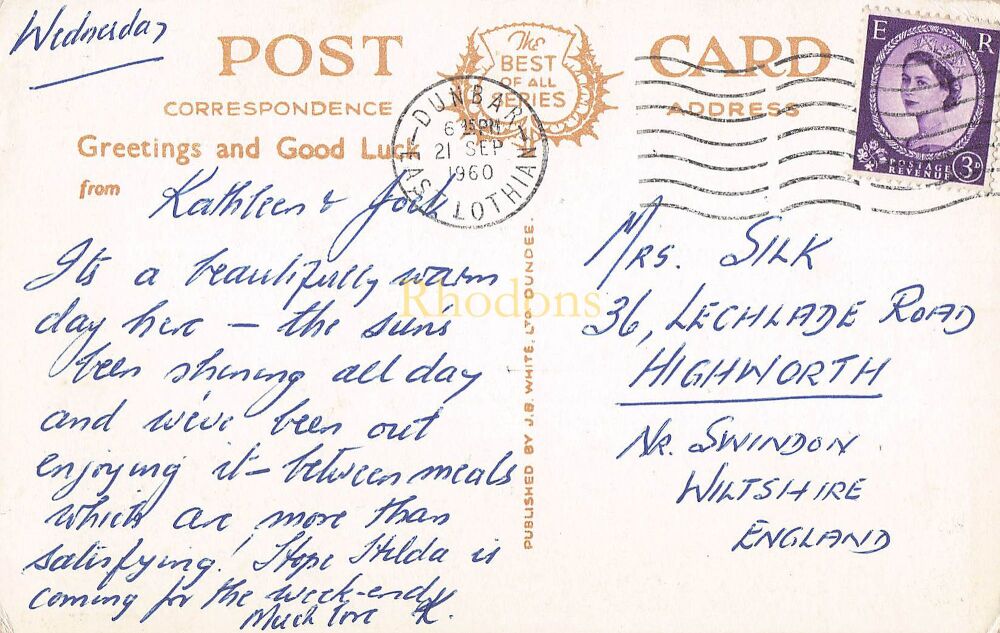 Wednesday
POST CARD
The
BEST
OF ALL
SERIES
CORRESPONDENCE
ADDRESS
Greetings and Good Luck
from
Kathleen & Jock
Its a beautifully warm
day here – the suns
been shining all day
and we've been out
enjoying it – between meals
which are more than
satisfying! Hope Hilda is
coming for the week-end
Much love K.
DUNBAR
6 PM
21 SEP
1960
EAST LOTHIAN
E R
POSTAGE
REVENUE
3D
PUBLISHED BY J.B. WHITE, LTD. DUNDEE
Rhodons
Mrs. SILK
36, LECHLADE ROAD
HIGHWORTH
NR. SWINDON
WILTSHIRE
ENGLAND